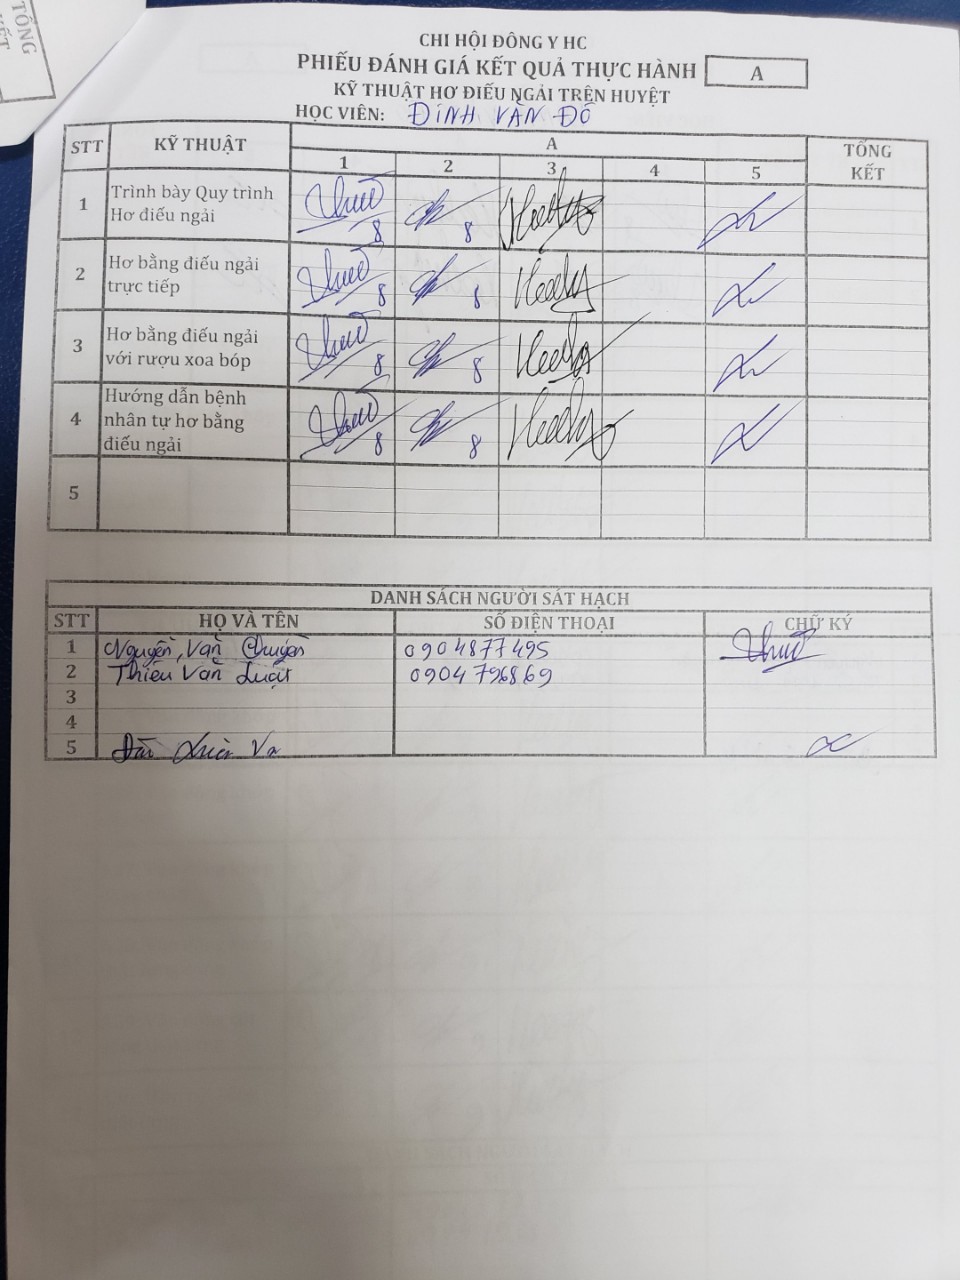 TỔNG
KẾT
CHI HỘI ĐÔNG Y HC
PHIẾU ĐÁNH GIÁ KẾT QUẢ THỰC HÀNH A
KỸ THUẬT HƠ ĐIẾU NGẢI TRÊN HUYỆT
HỌC VIÊN: ĐINH VĂN ĐÔ
STT KỸ THUẬT A TỔNG KẾT
1 2 3 4 5
1 Trình bày Quy trình
Hơ điếu ngải 8 8
2 Hơ bằng điếu ngải
trực tiếp 8 8
3 Hơ bằng điếu ngải
với rượu xoa bóp 8 8
4 Hướng dẫn bệnh
nhân tự hơ bằng
điếu ngải 8 8
5
DANH SÁCH NGƯỜI SÁT HẠCH
STT HỌ VÀ TÊN SỐ ĐIỆN THOẠI CHỮ KÝ
1 Nguyễn Văn 0904877495
2 Thiều Văn Luật 0904796869
3
4
5